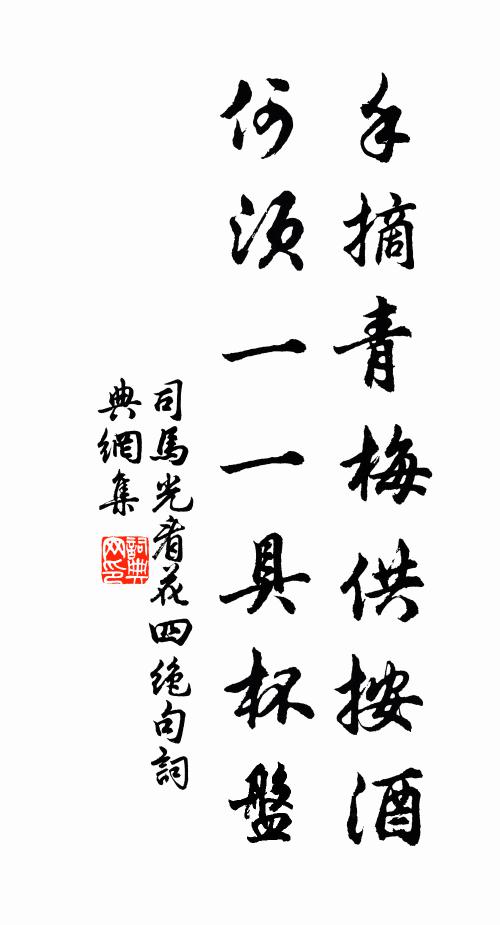 手摘青梅供按酒
何須一一具杯盤
司馬光看花四絕句詞
典網集
詞典
网印